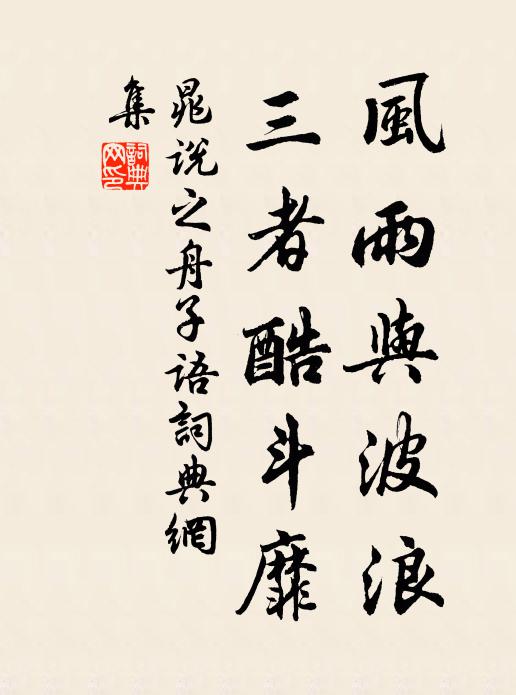 風雨與波浪
三者酷斗靡
晁說之舟子語詞典網
集
詞典
网印